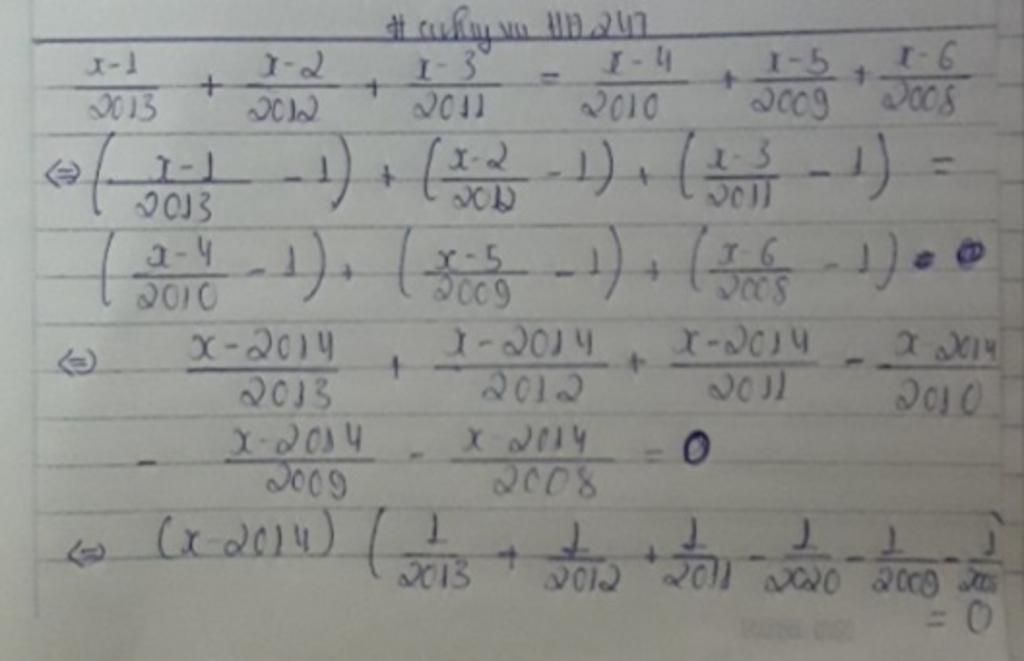 x-1/2013 + x-2/2012 + x-3/2011 = x-4/2010 + x-5/2009 + x-6/2008
⇔ (x-1/2013 - 1) + (x-2/2012 - 1) + (x-3/2011 - 1) =
(x-4/2010 - 1) + (x-5/2009 - 1) + (x-6/2008 - 1)
⇔ x-2014/2013 + x-2014/2012 + x-2014/2011 - x-2014/2010
- x-2014/2009 - x-2014/2008 = 0
⇔ (x-2014) (1/2013 + 1/2012 + 1/2011 - 1/2020 - 1/2009 - 1/2008
= 0